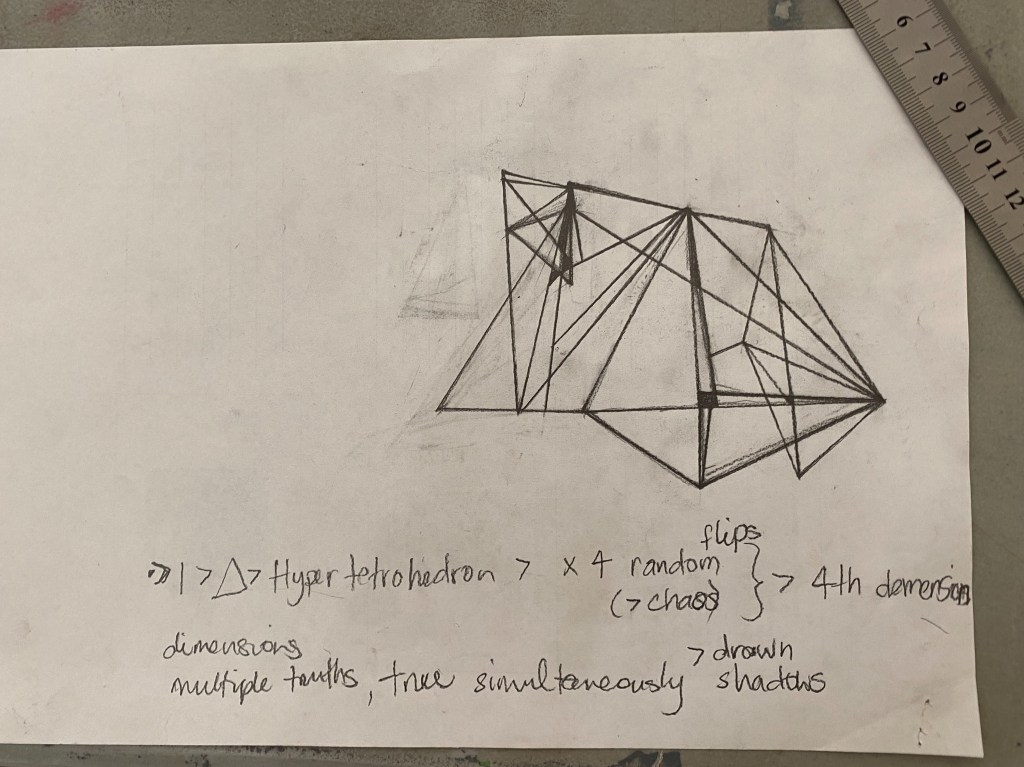 6 7 8 9 10 11 12
flips
» | > △ > Hyper tetrohedron > x 4 random } > 4th demension
(> chaos)
dimensions > drawn
multiple truths, true simultaneously shadows